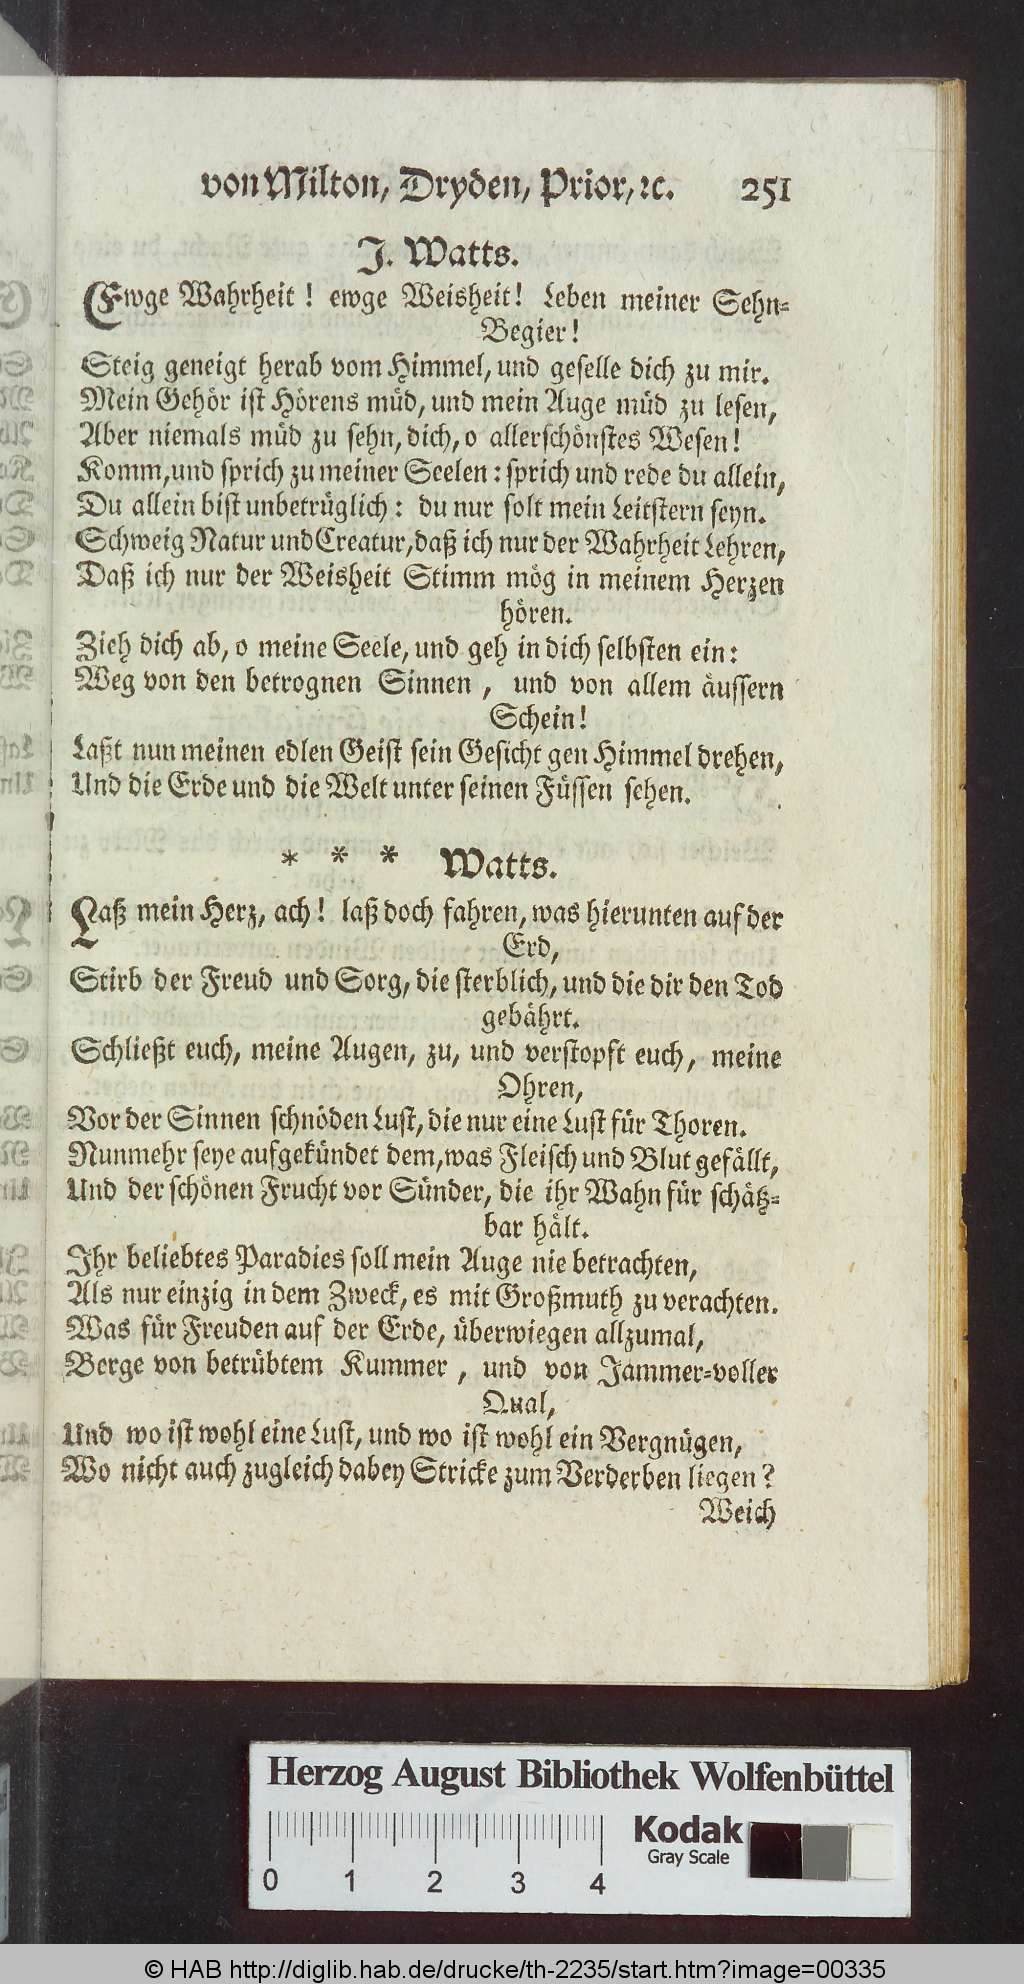 von Milton, Dryden, Prior, ꝛc. 251
J. Watts.
Ewge Wahrheit! ewge Weisheit! Leben meiner Sehn-
Begier!
Steig geneigt herab vom Himmel, und geselle dich zu mir.
Mein Gehör ist Hörens müd, und mein Auge müd zu lesen,
Aber niemals müd zu sehn, dich, o allerschönstes Wesen!
Komm, und sprich zu meiner Seelen: sprich und rede du allein,
Du allein bist unbetrüglich: du nur solt mein Leitstern seyn.
Schweig Natur und Creatur, daß ich nur der Wahrheit Lehren,
Daß ich nur der Weisheit Stimm mög in meinem Herzen
hören.
Zieh dich ab, o meine Seele, und geh in dich selbsten ein:
Weg von den betrognen Sinnen, und von allem äussern
Schein!
Laßt nun meinen edlen Geist sein Gesicht gen Himmel drehen,
Und die Erde und die Welt unter seinen Füssen sehen.
* * * Watts.
Laß mein Herz, ach! laß doch fahren, was hierunten auf der
Erd,
Stirb der Freud und Sorg, die sterblich, und die dir den Tod
gebährt.
Schließt euch, meine Augen, zu, und verstopft euch, meine
Ohren,
Vor der Sinnen schnöden Lust, die nur eine Lust für Thoren.
Nunmehr seye aufgekündet dem, was Fleisch und Blut gefällt,
Und der schönen Frucht vor Sünder, die ihr Wahn für schätz-
bar hält.
Ihr beliebtes Paradies soll mein Auge nie betrachten,
Als nur einzig in dem Zweck, es mit Großmuth zu verachten.
Was für Freuden auf der Erde, überwiegen allzumal,
Berge von betrübtem Kummer, und von Jammer-voller
Qual,
Und wo ist wohl eine Lust, und wo ist wohl ein Vergnügen,
Wo nicht auch zugleich dabey Stricke zum Verderben liegen?
Weich
Herzog August Bibliothek Wolfenbüttel
Kodak
Gray Scale
0 1 2 3 4
© HAB http://diglib.hab.de/drucke/th-2235/start.htm?image=00335